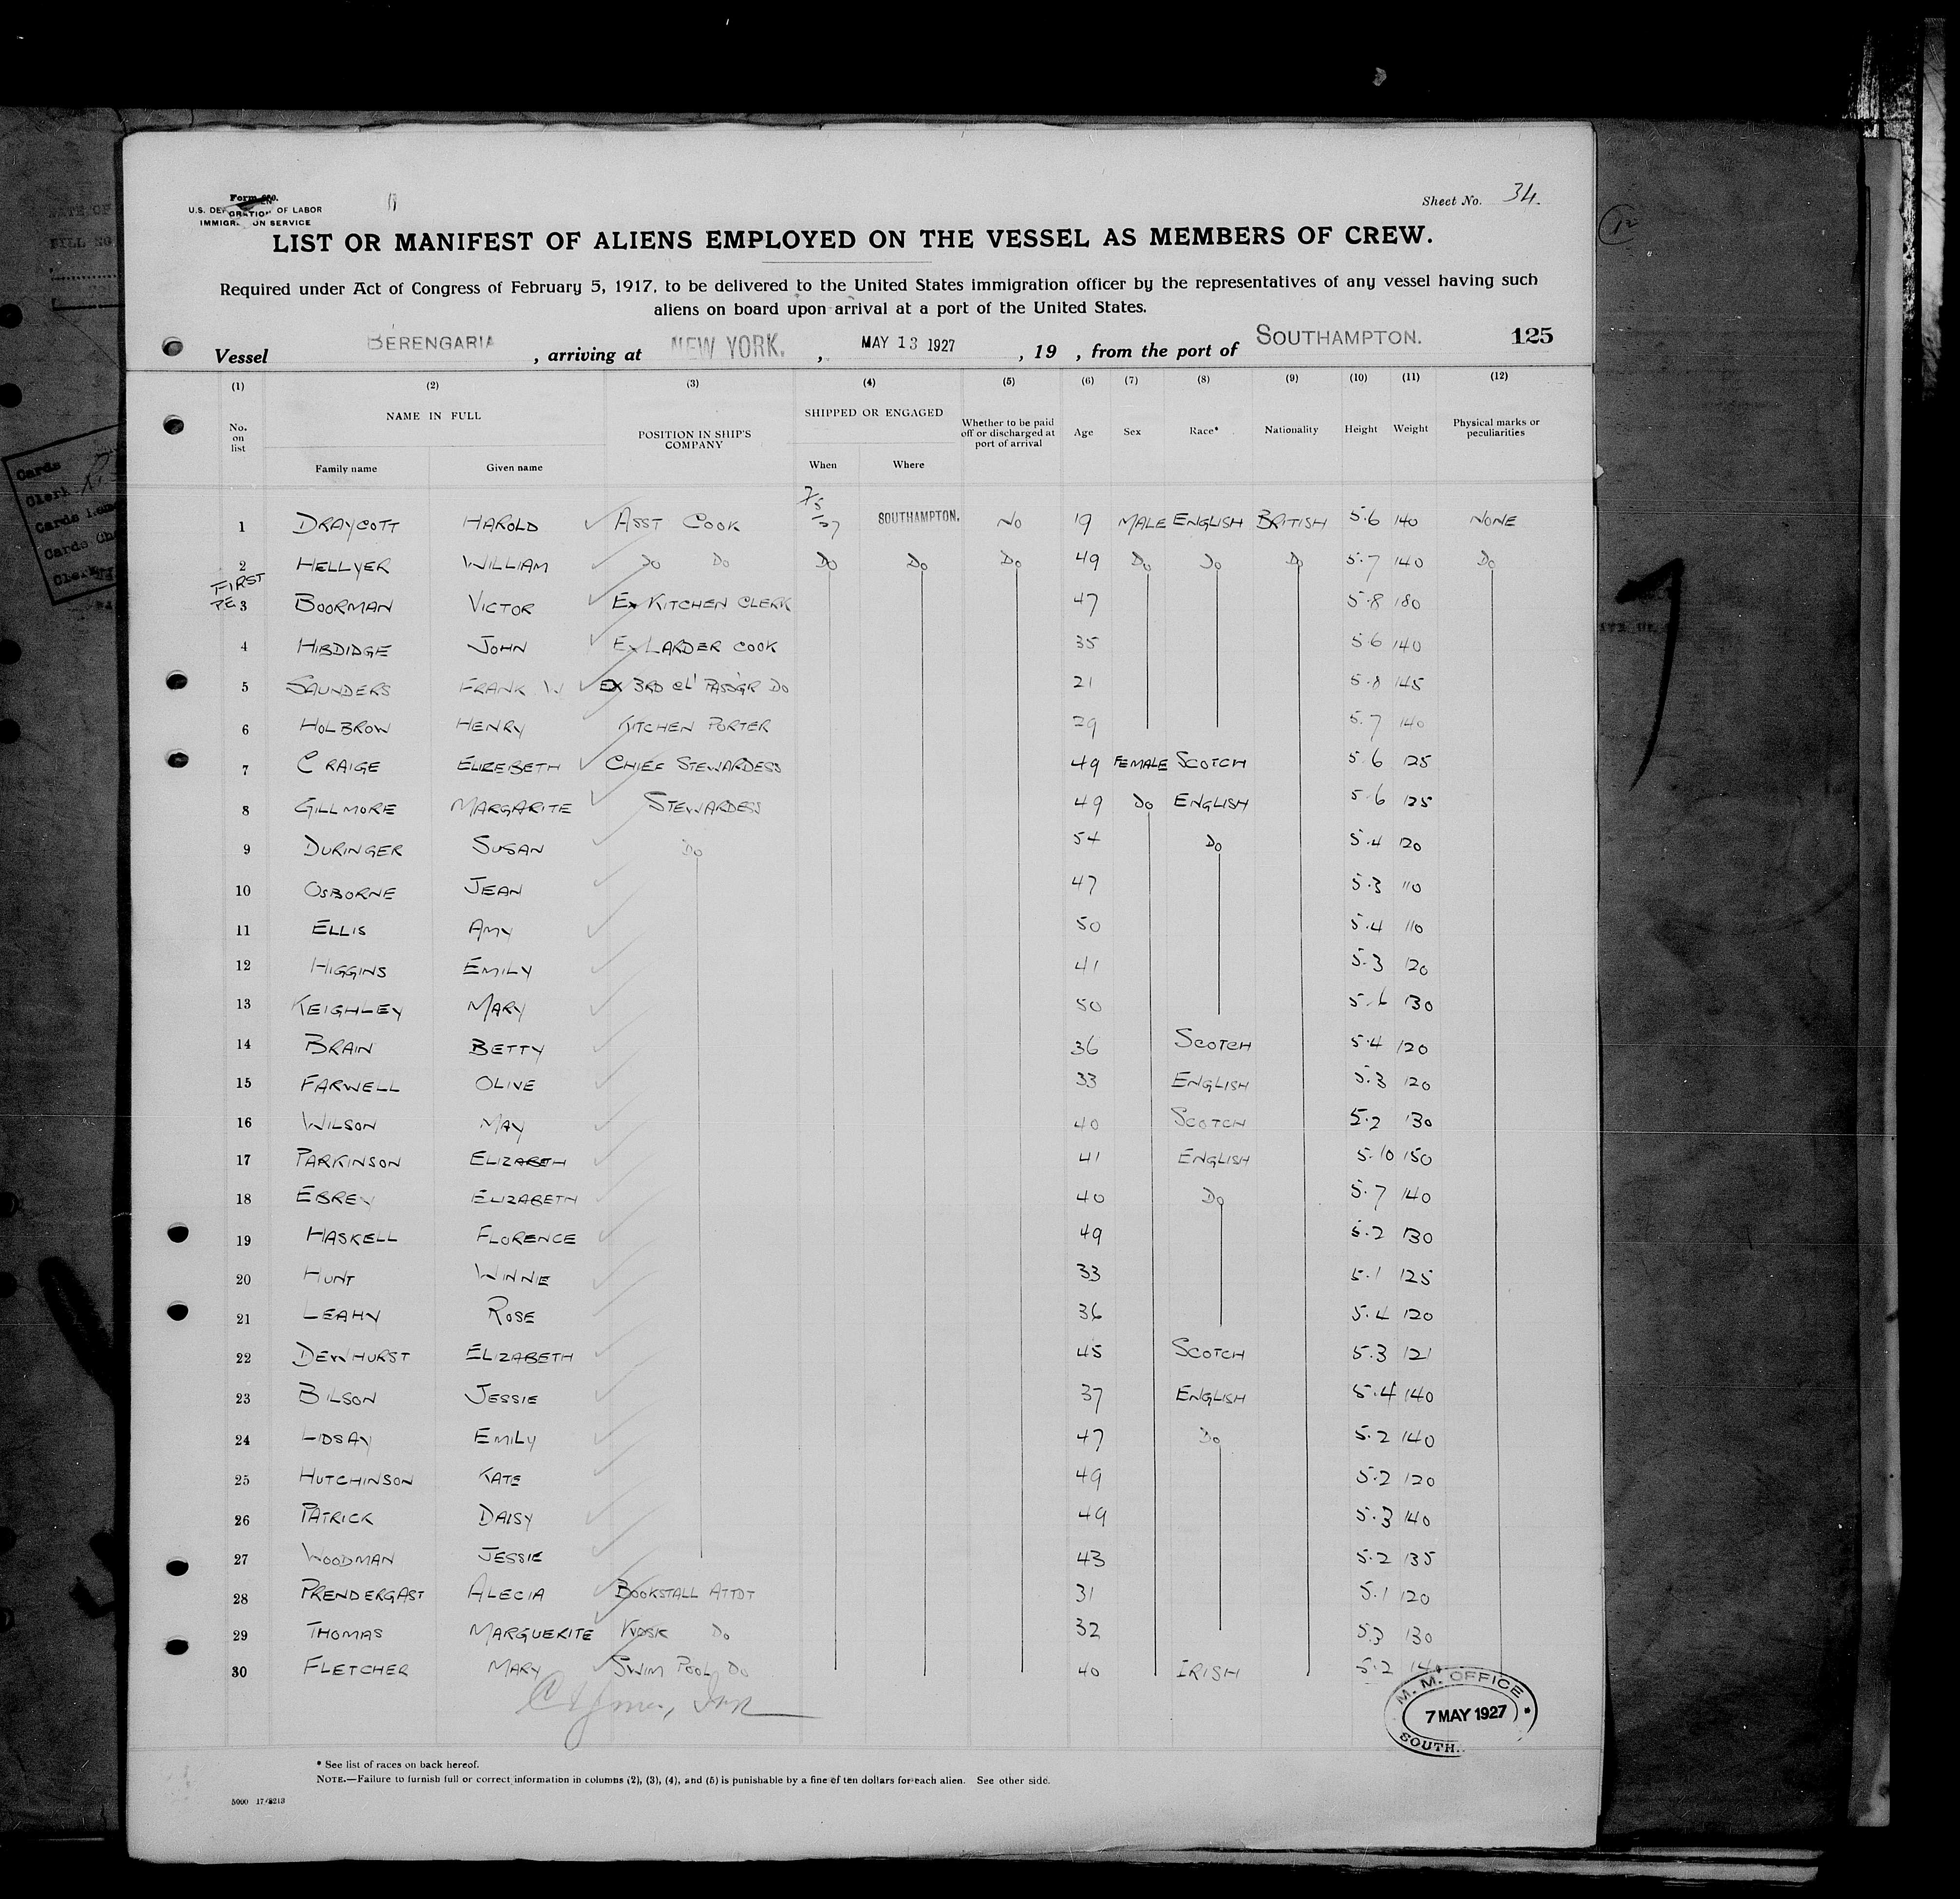 Form 680.
U.S. DEPARTMENT OF LABOR
IMMIGRATION SERVICE
Sheet No. 34.
LIST OR MANIFEST OF ALIENS EMPLOYED ON THE VESSEL AS MEMBERS OF CREW.
Required under Act of Congress of February 5, 1917, to be delivered to the United States immigration officer by the representatives of any vessel having such
aliens on board upon arrival at a port of the United States.
Vessel BERENGARIA, arriving at NEW YORK., MAY 13 1927, 19 , from the port of SOUTHAMPTON. 125
(1) (2) (3) (4) (5) (6) (7) (8) (9) (10) (11) (12)
No. on list NAME IN FULL POSITION IN SHIP'S COMPANY SHIPPED OR ENGAGED Whether to be paid off or discharged at port of arrival Age Sex Race* Nationality Height Weight Physical marks or peculiarities
Family name Given name When Where
1 DRAYCOTT HAROLD ASST COOK 7/5/27 SOUTHAMPTON. NO 19 MALE ENGLISH BRITISH 5.6 140 NONE
2 HELLYER WILLIAM DO DO DO DO DO 49 DO DO DO 5.7 140 DO
FIRST
3 BOORMAN VICTOR EX KITCHEN CLERK 47 5.8 180
4 HIBDIDGE JOHN EX LARDER COOK 35 5.6 140
5 SAUNDERS FRANK W EX 3RD CL PASSGR DO 21 5.8 145
6 HOLBROW HENRY KITCHEN PORTER 29 5.7 140
7 CRAIGE ELIZEBETH CHIEF STEWARDESS 49 FEMALE SCOTCH 5.6 125
8 GILLMORE MARGARITE STEWARDESS 49 DO ENGLISH 5.6 125
9 DURINGER SUSAN DO 54 DO 5.4 120
10 OSBORNE JEAN 47 5.3 110
11 ELLIS AMY 50 5.4 110
12 HIGGINS EMILY 41 5.3 120
13 KEIGHLEY MARY 50 5.6 130
14 BRAIN BETTY 36 SCOTCH 5.4 120
15 FARWELL OLIVE 33 ENGLISH 5.3 120
16 WILSON MAY 40 SCOTCH 5.2 130
17 PARKINSON ELIZABETH 41 ENGLISH 5.10 150
18 EBREY ELIZABETH 40 DO 5.7 140
19 HASKELL FLORENCE 49 5.2 130
20 HUNT WINNIE 33 5.1 125
21 LEAHY ROSE 36 5.4 120
22 DEWHURST ELIZABETH 45 SCOTCH 5.3 121
23 BILSON JESSIE 37 ENGLISH 5.4 140
24 LIDSAY EMILY 47 DO 5.2 140
25 HUTCHINSON KATE 49 5.2 120
26 PATRICK DAISY 49 5.3 140
27 WOODMAN JESSIE 43 5.2 135
28 PRENDERGAST ALECIA BOOKSTALL ATTDT 31 5.1 120
29 THOMAS MARGUERITE KIOSK DO 32 5.3 130
30 FLETCHER MARY SWIM POOL DO 40 IRISH 5.2 140
M. M. OFFICE
7 MAY 1927
SOUTH.
* See list of races on back hereof.
NOTE.—Failure to furnish full or correct information in columns (2), (3), (4), and (5) is punishable by a fine of ten dollars for each alien. See other side.
5000 17/8213